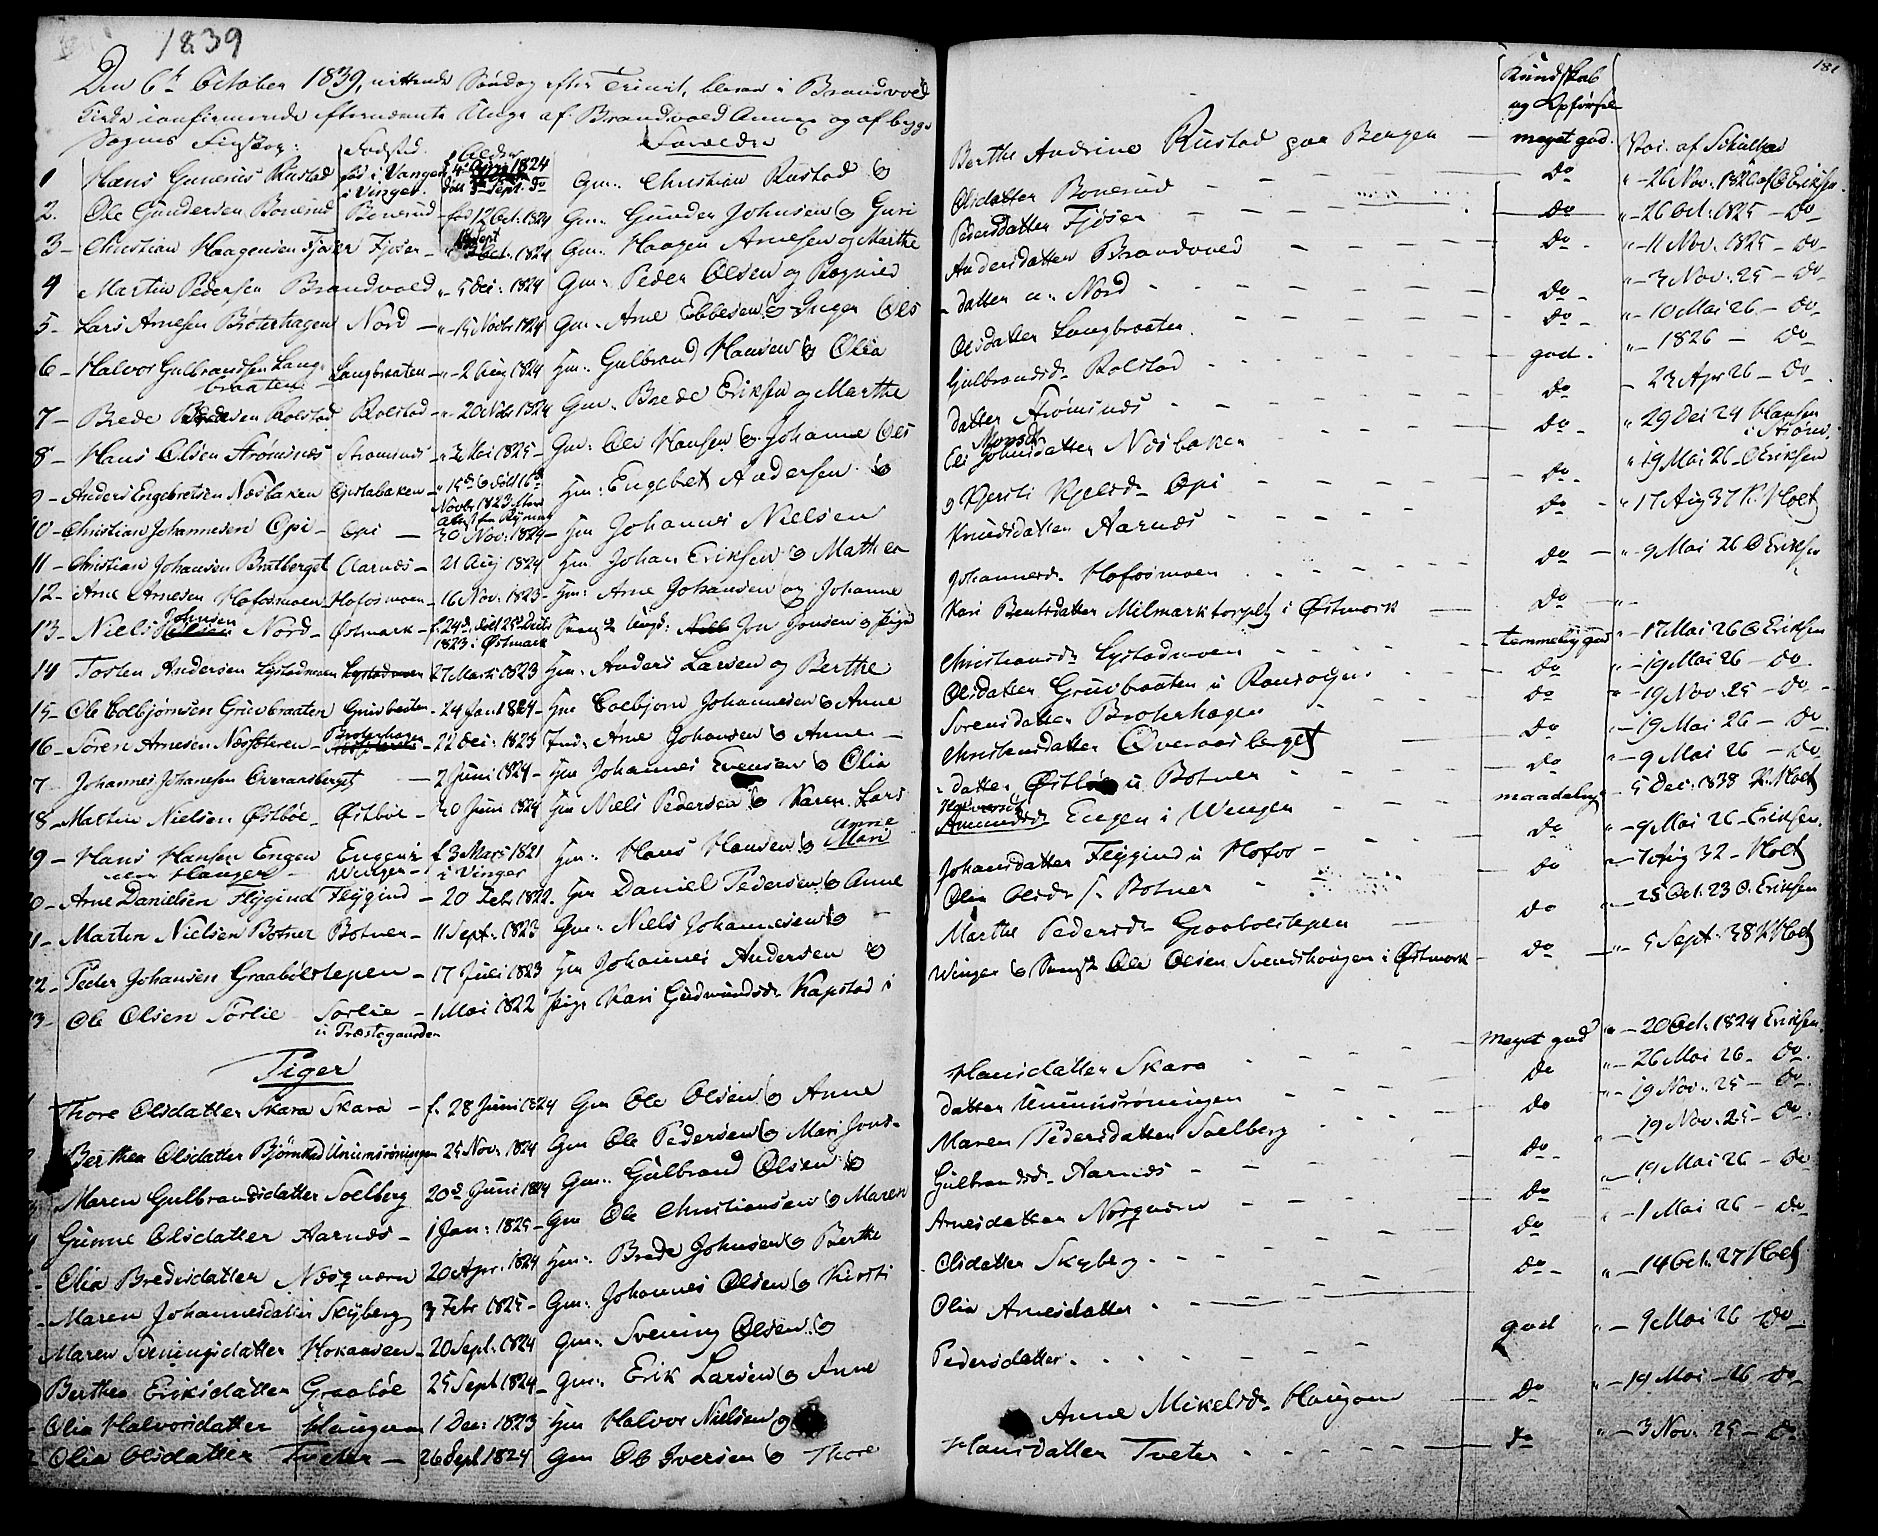 1839
181
Den 6te October 1839, nittende Søndag efter Trinit, bleve i Brandvold
Kirke confirmerede efternævnte Unge af Brandvold Annex og af bygd
Sognes Finskog:
Fødested. Alder Forældre
Kundskab og Opførsel
1 Hans Gunerius Rustad fød i Vangen i Vinger. 1824 døbt 5 Sept: do Gm: Christian Rustad & Berthe Andrine Rustad paa Bergen — meget god. Vac. af Schultze
2. Ole Gundersen Bonerud Bonerud fød 12 Oct: 1824 Gm: Gunder Johnsen & Guri Olsdatter Bonerud — Do "- 26 Nov. 1826 af O Eriksen
3 - Christian Haagensen Fjøser Fjøser - Sept Oct: 1824 Gm: Haagen Arnesen og Marthe Pedersdatter Fjøser — Do "- 26 Oct: 1825 - Do
4 Martin Pedersen Brandvold - 5 Dec: 1824 Gm: Peder Olsen og Ragnild Andersdatter Brandvold — Do "- 11 Nov: 1825 - Do
5 - Lars Arnesen Broterhagen Nord - "- 15 Novbr 1824 Gm: Arne Ebbesen & Inger Ols-datter u: Nord — Do "- 3 Nov: 25 - Do
6 - Halvor Gulbrandsen Langbraaten Langbraaten - "- 2 Aug 1824 Hm: Gulbrand Hansen & Olia Olsdatter Langbraaten — Do "- 10 Mai 26 - Do
7 - Brede Bredesen Rolstad Rolstad - "- 20 Nov 1824 Gm: Brede Eriksen og Marthe Gulbrandsd. Rolstad — god. "- 1826 - Do
8 - Hans Olsen Strømsnæs Strømsnæs "- 3 Mai 1825 - Gm: Ole Hansen & Johanne Ols datter Strømsnæs — Do - 23 Apr 26 - Do
9 - Anders Engebretsen Næsbaken Gjestabaken - " 15de & døbt 16de Novbr 1823 Hm: Engebet Andersen & Eli Johnsdatter Næsbaken — Do " 29 Dec 24 Hansen
10 - Christian Johannesen Opi - Opi — 30 Nov: 1824 - Hm Johannes Nielsen og Kjersti Kjelsd. Opi — Do " 19 Mai 26 - O Eriksen
11 - Christian Johansen Bratberget Aarnæs - 21 Aug 1824 Hm Johan Eriksen & Mathea Knudsdatter Aarnæs — Do " 17 Aug 37 P. Holt
12 - Arne Arnesen Hofosmoen Hofosmoen - 16 Nov: 1823 - Hm: Arne Johansen og Johanne Johannesd. Hofosmoen — Do "- 9 Mai 26 O Eriksen
13 - Niels Johnsen Nord - Østmark - f. 24de døbt 28de Decbr 1823 i Østmark Ungk: Jon Jonsen & Pige Kari Berntsdatter Milmarktorpet i Østmark — Do "-
14 Tosten Andersen Lystadmoen Lystadmoen 27 Marts 1823 Hm: Anders Larsen og Berthe Christiansd. Lystadmoen — temmelig god "- 17 Mai 26 O Eriksen
15 - Ole Colbjørnsen Gruebraaten Gruebraaten - 24 Jan 1824 - Hm Colbjørn Johannesen & Anne Olsdatter Gruebraaten u — Do "- 19 Mai 26 - Do
16 - Søren Arnesen Næssæteren - Broterhagen - 22 Dec: 1823 Ind: Arne Johansen & Anne Sørensdatter Broterhagen — Do "- 19 Nov: 25 - Do
17 Johannes Johanesen Overaasberget — 2 Juni 1824 - Hm Johannes Evensen & Olia Christensdatter Overaasberget — Do "- 19 Mai 26 - Do
18 - Martin Nielsen Østbøe - Østbøe - 30 Juni 1824 Hm Niels Pedersen & Karen Lars-datter Østbøe u Botner — Do "- 9 Mai 26 - Do
19 - Hans Hansen Engen Engen i Winger - f. 3 Mars 1821 i Vinger Hm: Hans Hansen & Anne Mari Halvorsd. Amundsd. Engen i Wenger — maadelig "- 5 Dec: 1838 P. Holt
20 - Arne Danielsen Flygind Flygind - 20 Febr 1822. Hm Daniel Pedersen & Anne Johansdatter Flygind u Hofos — Do "- 9 Mai 26 - Eriksen.
21 - Martin Nielsen Botner Botner - 11 Sept: 1823 Gm: Niels Johannesen & Olia Olsd. f. Botner — Do "- 7 Aug 32 - Holt
22 - Peder Johansen Graabølstepen - 17 Juli 1823 Hm Johannes Andersen & Marthe Pedersd. Graabolstepen — Do "- 25 Oct: 23 O. Eriksen
23 - Ole Olsen Sørlie Sørlie u Præstegaarden - 1 Mai 1822 Pige Kari Gudmundsd. Kapstad i Winger & Ungk Ole Olsen Svendskougen i Østmark - Do "- 5 Sept: 38 P. Holt
Piger
1 Thore Olsdatter Skara Skara - f. 28 Juni 1824 Gm Ole Olsen & Anne Hansdatter Skara — Meget god "- 20 Oct: 1824 Eriksen.
2 Berthea Olsdatter Bjørnstad Ununsrøningen 25 Nov: 1824 Gm Ole Pedersen & Mari Jons-datter Ununsrøningen — Do "- 26 Mai 26 - Do
3 Maren Gulbrandsdatter Soelberg 20de Juni 1824 Gm: Gulbrand Olsen & Maren Pedersdatter Soelberg — Do "- 19 Nov: 25 - Do
4 Gunne Olsdatter Aarnæs - 1 Jan: 1825 - Gm Ole Christiansen & Maren Gulbrandsd. Aarnæs — Do "- 19 Nov: 25 - Do
5 - Olia Bredesdatter Næsqværn 20 Apr: 1824 Hm: Brede Johnsen & Berthe Arnesdatter Næsqværn — Do "- 19 Mai 26 - Do
6 - Maren Johannesdatter Skyberg 3 Febr 1825 - Gm: Johannes Olsen & Kirsti Olsdatter Skyberg - Do - 1 Mai 26 - Do
Maren Sveningsdatter Hokaasen - 20 Sept: 1824 Gm: Svening Olsen & Olia Arnesdatter — Do "- 14 Oct: 27 Holt
Berthea Eriksdatter Graabøe 25 Sept 1824 - Gm: Erik Larsen & Anne Pedersdatter. — god "- 9 Mai 26 Do
Olia Halvorsdatter Haugom 1 Dec: 1823 Hm Halvor Nielsen & Anne Mikelsd. Haugom — Do "- 14 Mai - 26 - Do
Olia Olsdatter Tveter - 26 Sept 1824 Gm Ole Iversen & Thore Hansdatter Tveter — Do "- 3 Nov: 25 - Do